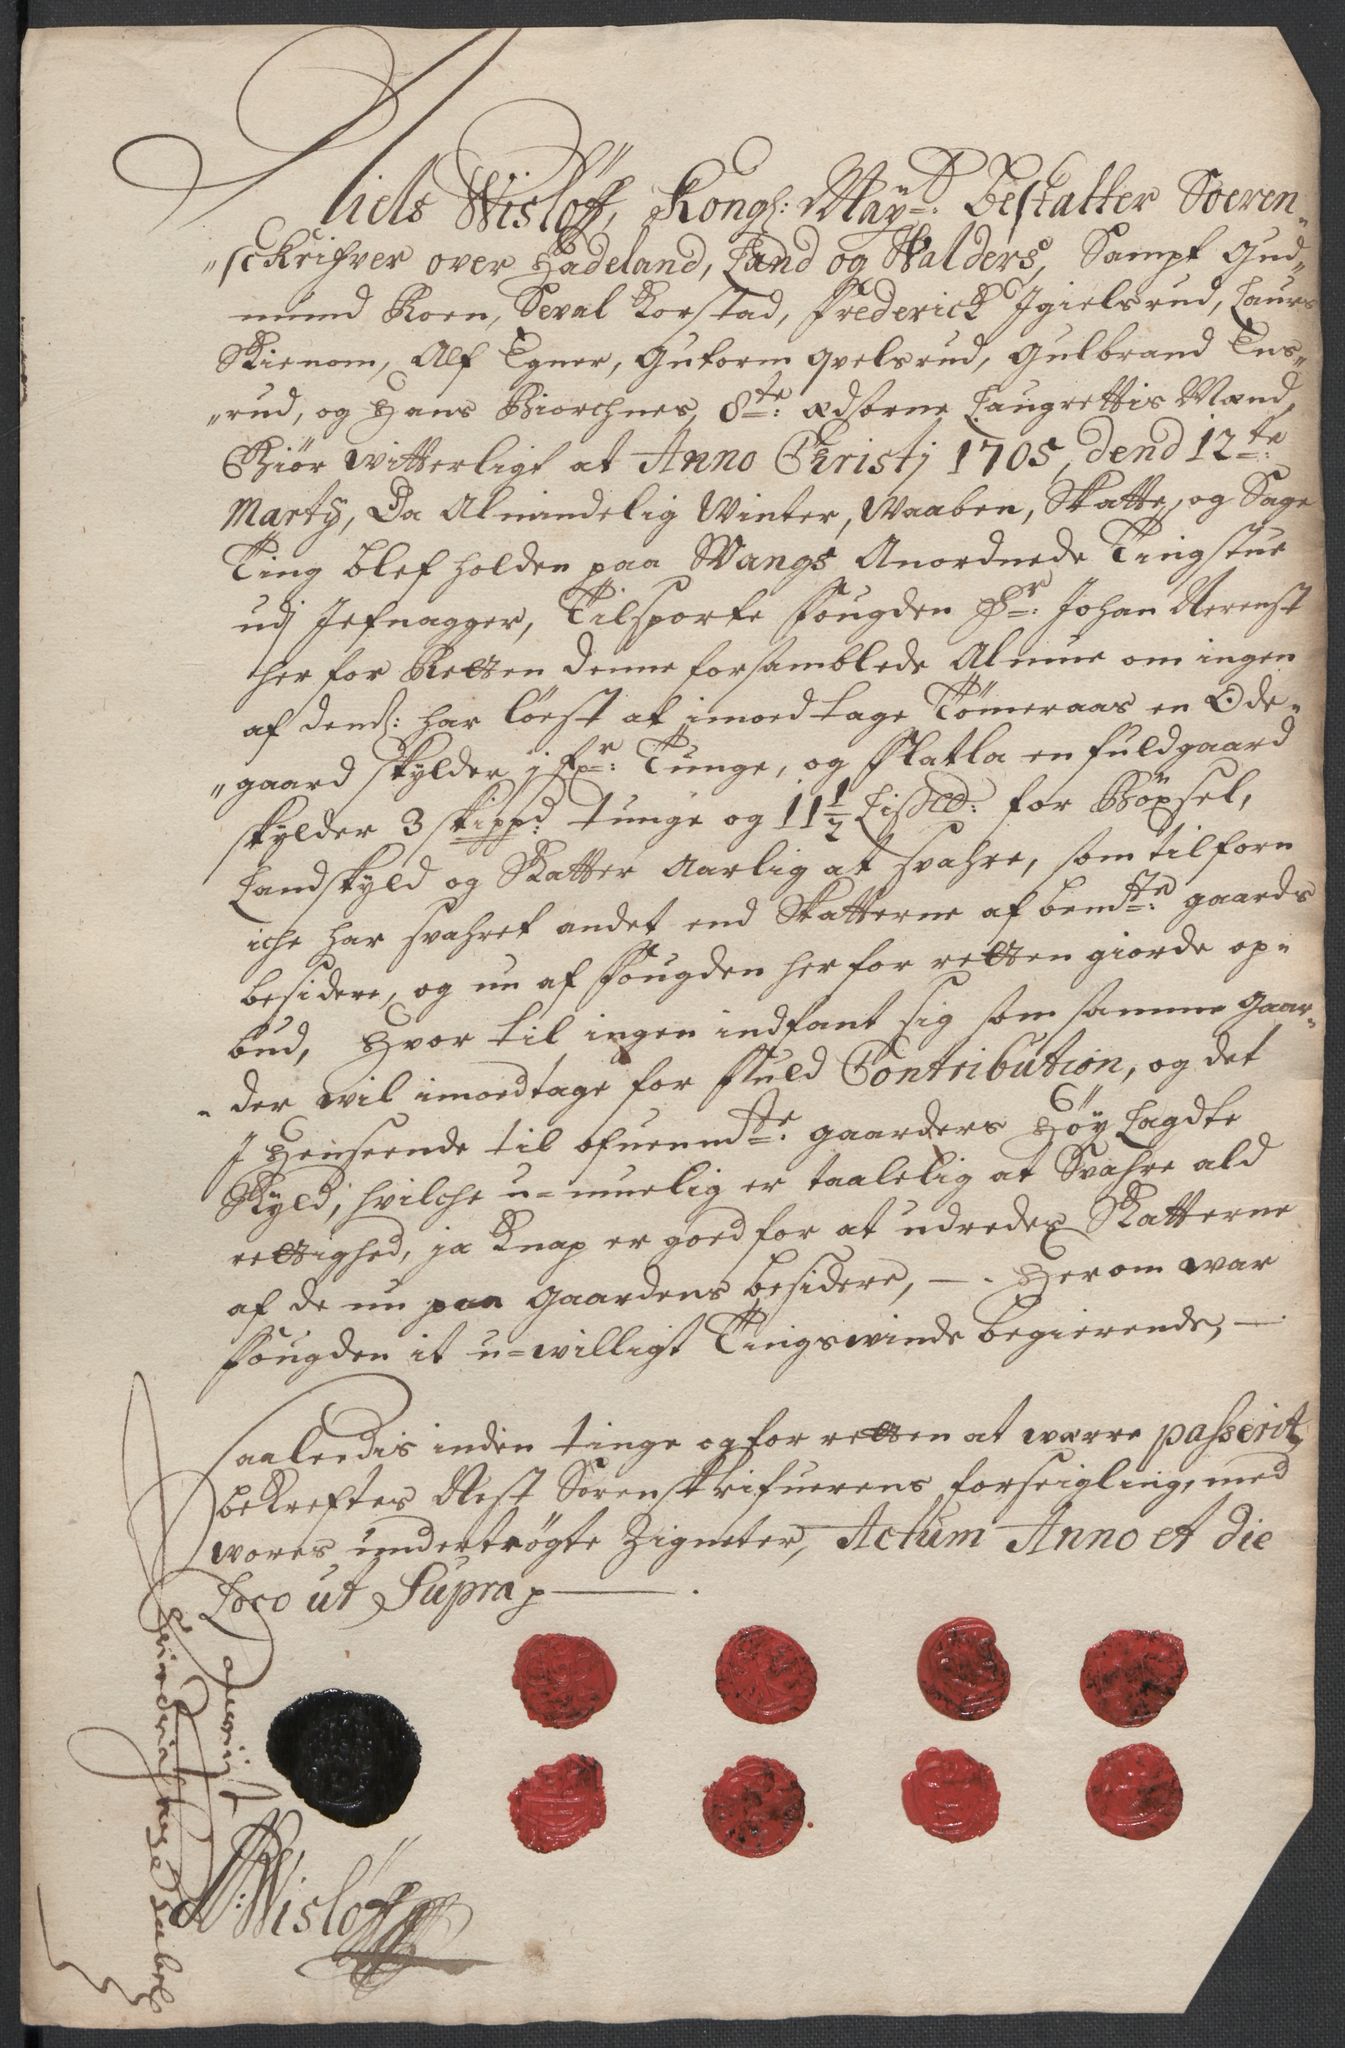 Niels Wisløff, Kongl: Maÿ: bestalter Soeren¬
„schrifver over Hadeland, Land og Walders, Sampt Gud„
mund Roen, Seval Korstad, Frederick Igielsrud, Laurs
Skienom, Alf Egner, Gutorm Qvelsrud, Gulbrand Ens„
„rud, og Hans Biørchnes, 8te: edsorne Laugrettis Mænd,
Giør witterligt at Anno Christj 1705, dend 12te:
Martÿ, Da Almindelig Winter, Waaben, Skatte, og Sage
Ting blef holden paa Wangs Anordnede Tingstue
udj Jefnagger, Tilsporte Fougden Sr: Johan Nerenst
her for Retten denne forsamblede Almue om ingen
af dem har løest at imoed tage Tømeraas en Øde„
„gaard skylder j fr: Tunge, og Flatla en fuldgaard
skylder 3 skippd: tunge og 11½ Lispd: for Bøxsel,
Landskyld og Skatter Aarlig at svahre, som tilforn
iche har svahret andet end Skatterne af bemte: gaards
besidere, og nu af Fougden her for retten giorde op„
bud, Hvor til ingen indfant sig som samme gaar„
„der wil imoedtage for Fuld Contribution, og det
J Henseende til ofuenmte: gaarders Høÿ Lagdte
Skyld, hvilche u-muelig er taalelig at Svahre ald
rettighed, ja knap er goed for at udredes Skatterne
af de nu paa gaardens besidere, — . Herom war
Fougden it u-willigt Tingswinde begierende, —
Saaledis inden tinge og for retten at werre passerit,
bekreftes Nest Sorenskrifuerens forseigling, med
wores undertrøgte Zigneter, Actum Anno et die
Loco ut Supra p —— .
N: Wisløff